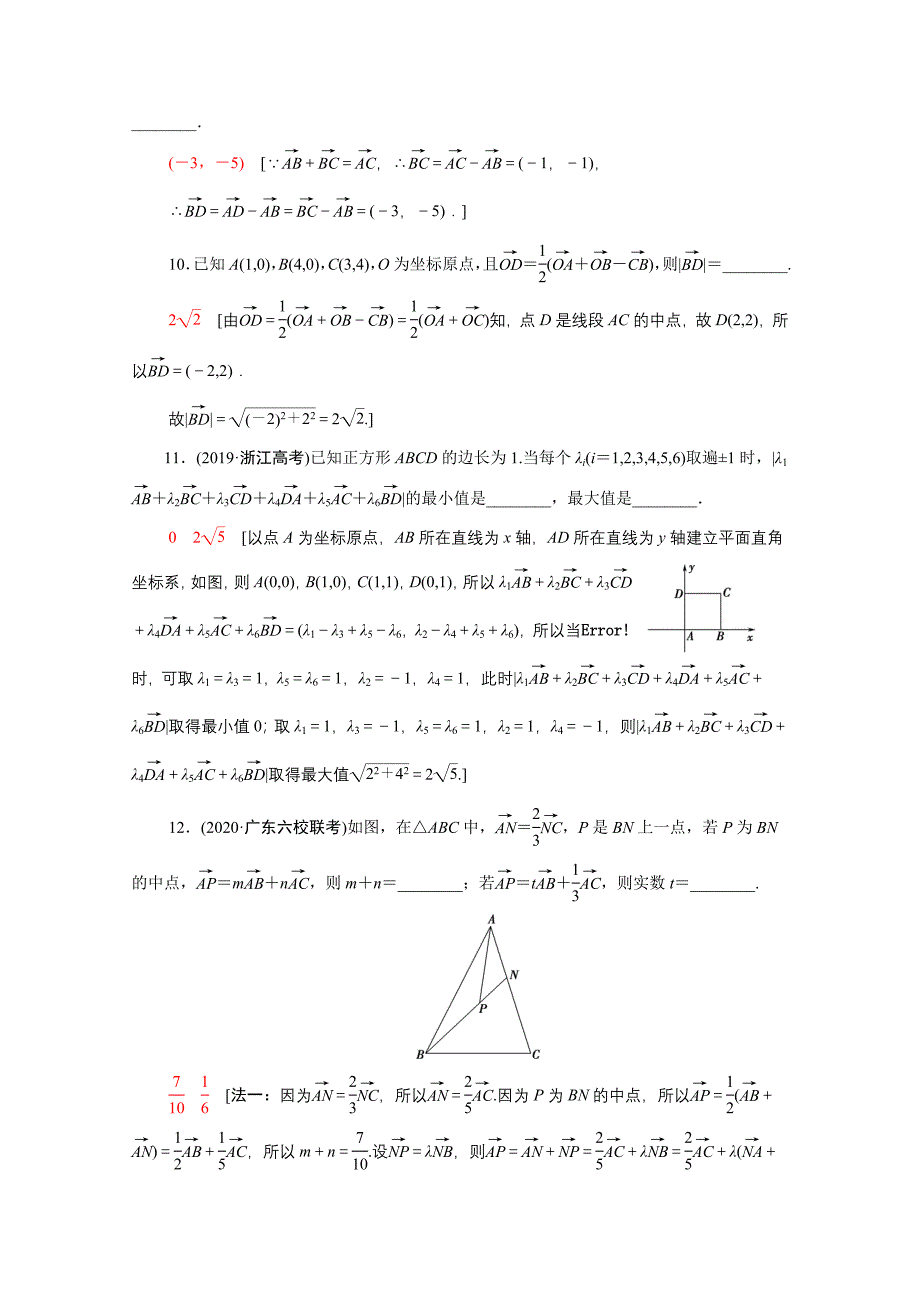 ________．
(－3，－5)　[∵$\overrightarrow{AB}$＋$\overrightarrow{BC}$＝$\overrightarrow{AC}$，∴$\overrightarrow{BC}$＝$\overrightarrow{AC}$－$\overrightarrow{AB}$＝(－1，－1)，
∴$\overrightarrow{BD}$＝$\overrightarrow{AD}$－$\overrightarrow{AB}$＝$\overrightarrow{BC}$－$\overrightarrow{AB}$＝(－3，－5)．]
10.已知 A(1,0)，B(4,0)，C(3,4)，O 为坐标原点，且$\overrightarrow{OD}$＝$\frac{1}{2}$($\overrightarrow{OA}$＋$\overrightarrow{OB}$－$\overrightarrow{CB}$)，则|$\overrightarrow{BD}$|＝________.
2$\sqrt{2}$　[由$\overrightarrow{OD}$＝$\frac{1}{2}$($\overrightarrow{OA}$＋$\overrightarrow{OB}$－$\overrightarrow{CB}$)＝$\frac{1}{2}$($\overrightarrow{OA}$＋$\overrightarrow{OC}$)知，点 D 是线段 AC 的中点，故 D(2,2)，所
以$\overrightarrow{BD}$＝(－2,2)．
故|$\overrightarrow{BD}$|＝$\sqrt{(－2)^2＋2^2}$＝2$\sqrt{2}$.]
11．(2019·浙江高考)已知正方形 ABCD 的边长为 1.当每个 λ_i(i＝1,2,3,4,5,6)取遍±1 时，|λ_1
$\overrightarrow{AB}$＋λ_2$\overrightarrow{BC}$＋λ_3$\overrightarrow{CD}$＋λ_4$\overrightarrow{DA}$＋λ_5$\overrightarrow{AC}$＋λ_6$\overrightarrow{BD}$|的最小值是________，最大值是________．
0　2$\sqrt{5}$　[以点 A 为坐标原点，AB 所在直线为 x 轴，AD 所在直线为 y 轴建立平面直角
坐标系，如图，则 A(0,0)，B(1,0)，C(1,1)，D(0,1)，所以 λ_1$\overrightarrow{AB}$＋λ_2$\overrightarrow{BC}$＋λ_3$\overrightarrow{CD}$
＋λ_4$\overrightarrow{DA}$＋λ_5$\overrightarrow{AC}$＋λ_6$\overrightarrow{BD}$＝(λ_1－λ_3＋λ_5－λ_6，λ_2－λ_4＋λ_5＋λ_6)，所以当Error!
y
D C
A B x
时，可取 λ_1＝λ_3＝1，λ_5＝λ_6＝1，λ_2＝－1，λ_4＝1，此时|λ_1$\overrightarrow{AB}$＋λ_2$\overrightarrow{BC}$＋λ_3$\overrightarrow{CD}$＋λ_4$\overrightarrow{DA}$＋λ_5$\overrightarrow{AC}$＋
λ_6$\overrightarrow{BD}$|取得最小值 0；取 λ_1＝1，λ_3＝－1，λ_5＝λ_6＝1，λ_2＝1，λ_4＝－1，则|λ_1$\overrightarrow{AB}$＋λ_2$\overrightarrow{BC}$＋λ_3$\overrightarrow{CD}$＋
λ_4$\overrightarrow{DA}$＋λ_5$\overrightarrow{AC}$＋λ_6$\overrightarrow{BD}$|取得最大值$\sqrt{2^2＋4^2}$＝2$\sqrt{5}$.]
12．(2020·广东六校联考)如图，在△ABC 中，$\overrightarrow{AN}$＝$\frac{2}{3}$$\overrightarrow{NC}$，P 是 BN 上一点，若 P 为 BN
的中点，$\overrightarrow{AP}$＝m$\overrightarrow{AB}$＋n$\overrightarrow{AC}$，则 m＋n＝________；若$\overrightarrow{AP}$＝t$\overrightarrow{AB}$＋$\frac{1}{3}$$\overrightarrow{AC}$，则实数 t＝________.
A
N
P
B C
$\frac{7}{10}$　$\frac{1}{6}$　[法一：因为$\overrightarrow{AN}$＝$\frac{2}{3}$$\overrightarrow{NC}$，所以$\overrightarrow{AN}$＝$\frac{2}{5}$$\overrightarrow{AC}$.因为 P 为 BN 的中点，所以$\overrightarrow{AP}$＝$\frac{1}{2}$($\overrightarrow{AB}$＋
$\overrightarrow{AN}$)＝$\frac{1}{2}$$\overrightarrow{AB}$＋$\frac{1}{5}$$\overrightarrow{AC}$，所以 m＋n＝$\frac{7}{10}$.设$\overrightarrow{NP}$＝λ$\overrightarrow{NB}$，则$\overrightarrow{AP}$＝$\overrightarrow{AN}$＋$\overrightarrow{NP}$＝$\frac{2}{5}$$\overrightarrow{AC}$＋λ$\overrightarrow{NB}$＝$\frac{2}{5}$$\overrightarrow{AC}$＋λ($\overrightarrow{NA}$＋